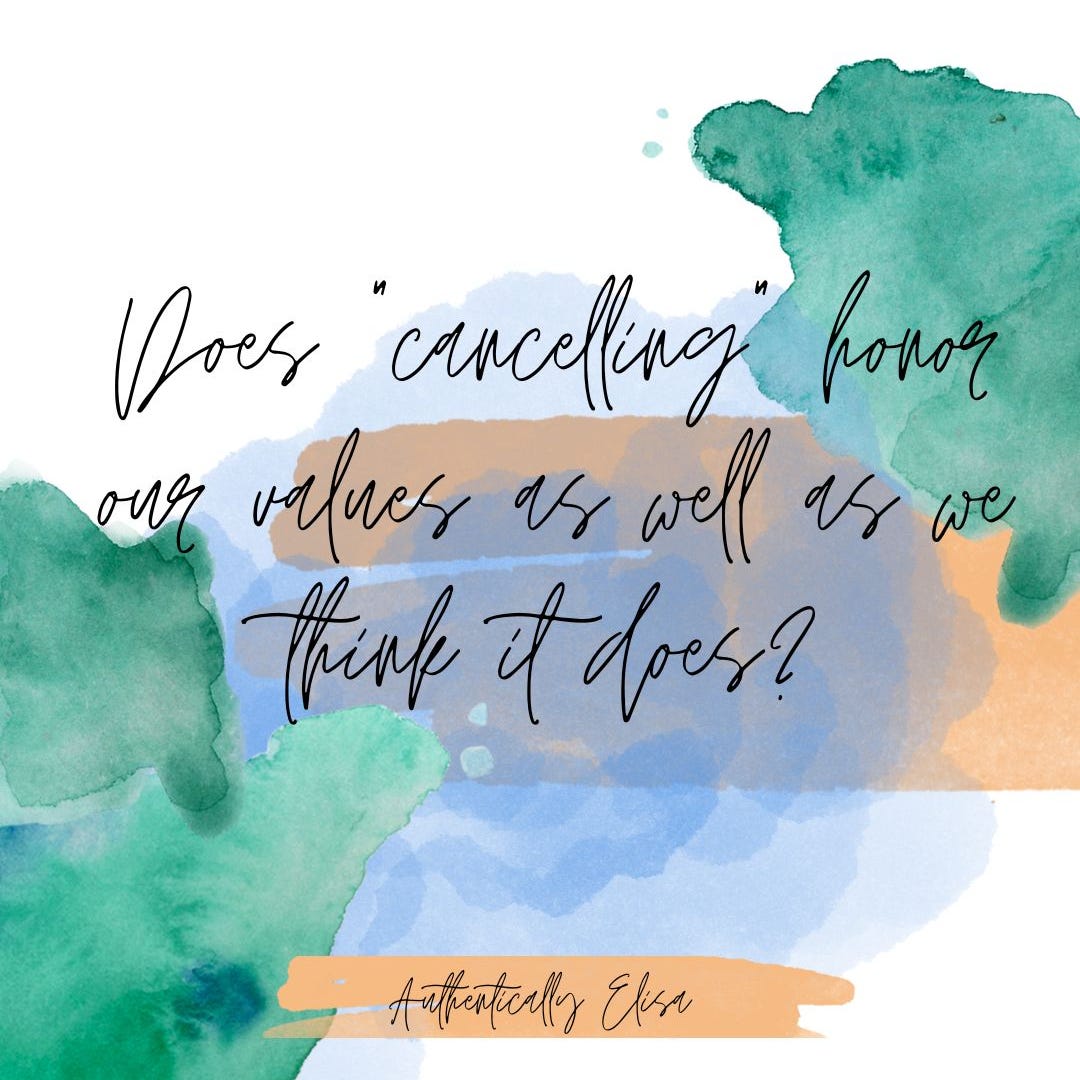 Does "cancelling" honor
our values as well as we
think it does?
Authentically Elisa